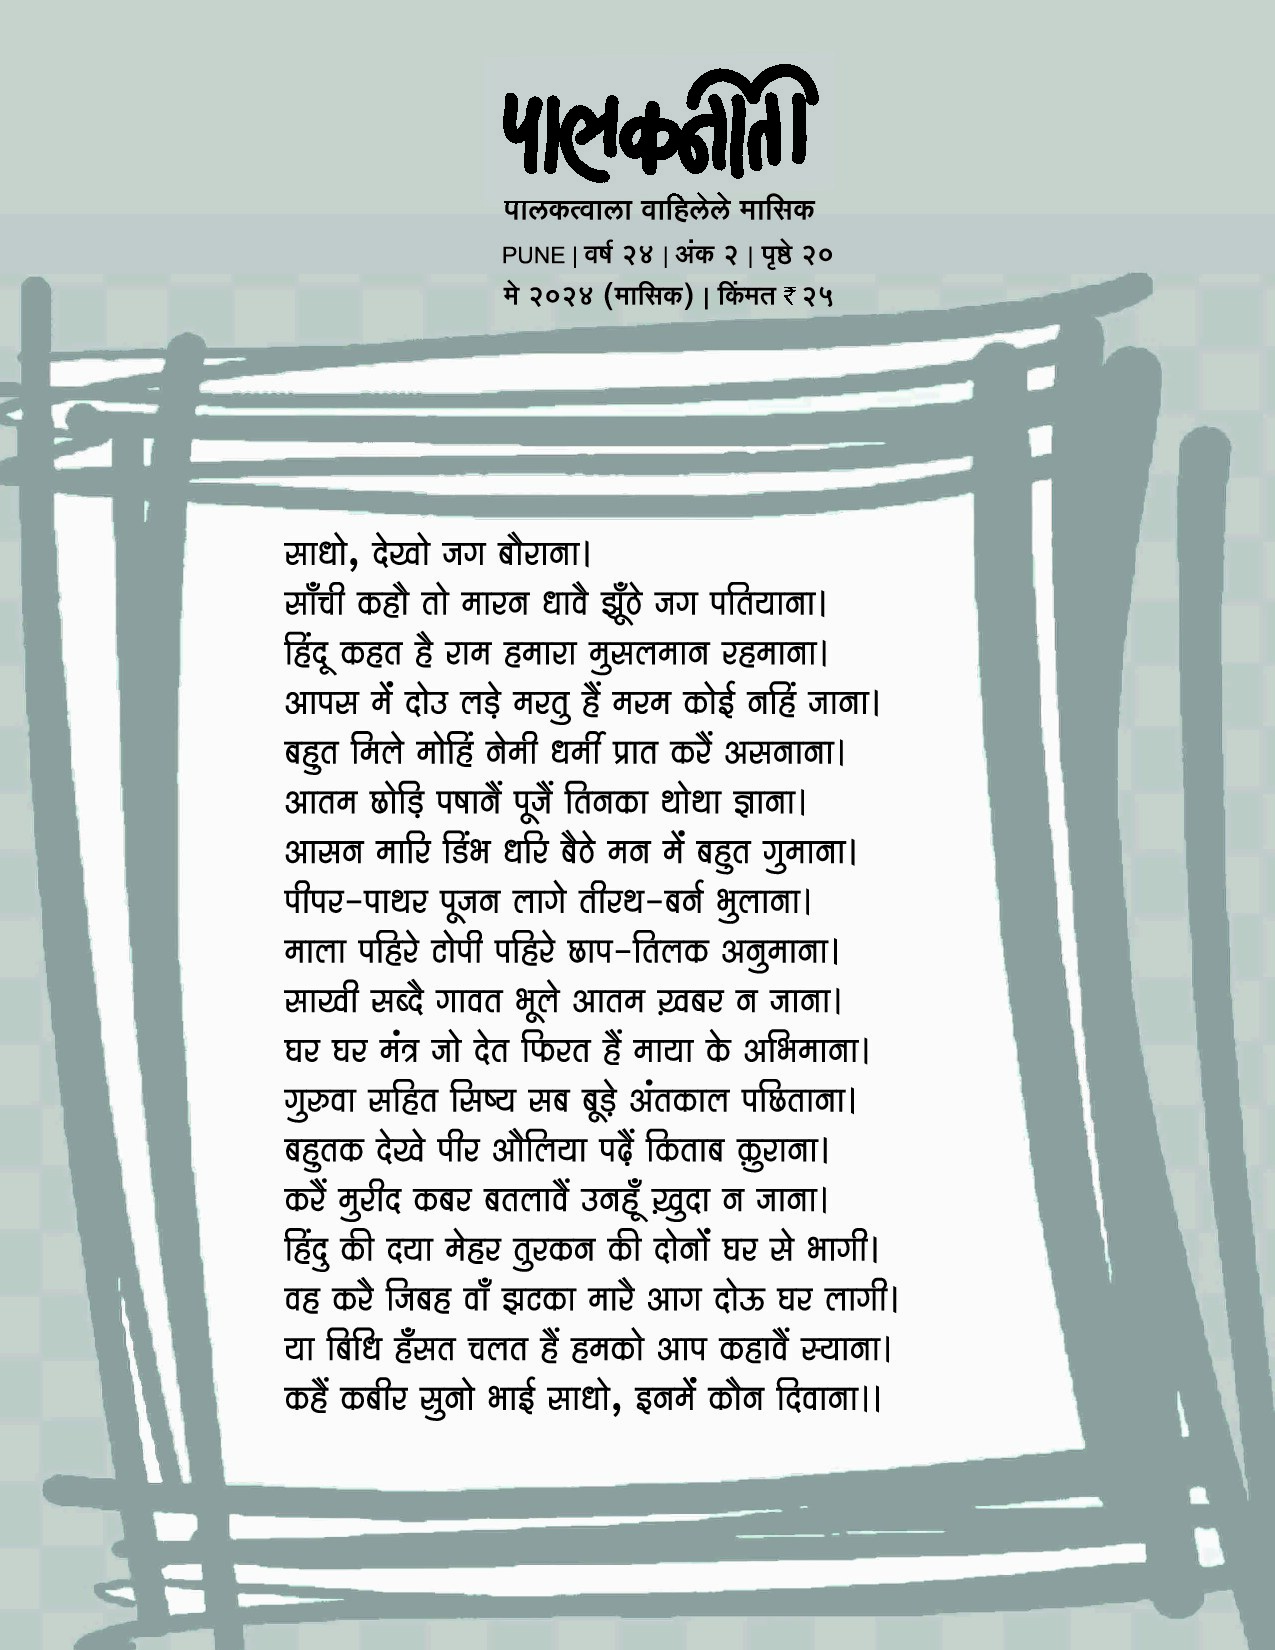 पालकनीती
पालकत्वाला वाहिलेले मासिक
PUNE | वर्ष २४ | अंक २ | पृष्ठे २०
मे २०२४ (मासिक) | किंमत ₹ २५
साधो, देखो जग बौराना।
साँची कहौ तो मारन धावै झूँठे जग पतियाना।
हिंदू कहत है राम हमारा मुसलमान रहमाना।
आपस में दोउ लड़े मरतु हैं मरम कोई नहिं जाना।
बहुत मिले मोहिं नेमी धर्मी प्रात करैं असनाना।
आतम छोड़ि पषानैं पूजैं तिनका थोथा ज्ञाना।
आसन मारि डिंभ धरि बैठे मन में बहुत गुमाना।
पीपर-पाथर पूजन लागे तीरथ-बर्न भुलाना।
माला पहिरे टोपी पहिरे छाप-तिलक अनुमाना।
साखी सब्दै गावत भूले आतम ख़बर न जाना।
घर घर मंत्र जो देत फिरत हैं माया के अभिमाना।
गुरुवा सहित सिष्य सब बूड़े अंतकाल पछिताना।
बहुतक देखे पीर औलिया पढ़ैं किताब क़ुराना।
करैं मुरीद कबर बतलावैं उनहूँ ख़ुदा न जाना।
हिंदु की दया मेहर तुरकन की दोनों घर से भागी।
वह करै जिबह वाँ झटका मारै आग दोऊ घर लागी।
या बिधि हँसत चलत हैं हमको आप कहावैं स्याना।
कहैं कबीर सुनो भाई साधो, इनमें कौन दिवाना।।